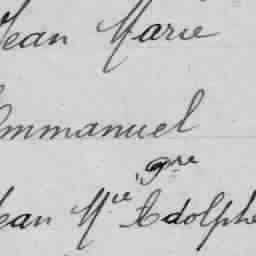 Jean Marie
Emmanuel
gne
Jean Mie Adolphe